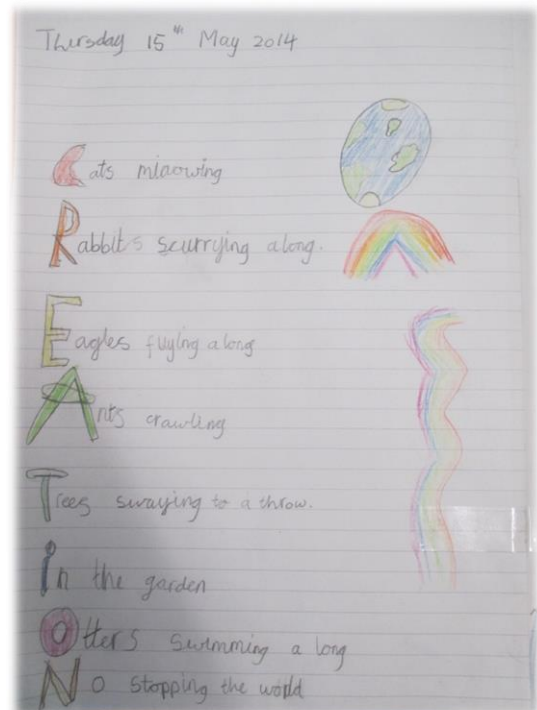 Thursday 15th May 2014
Cats miaowing
Rabbits scurrying along.
Eagles fuying along
Ants crawling
Trees swaying to a throw.
In the garden
Otters swimming a long
No stopping the world